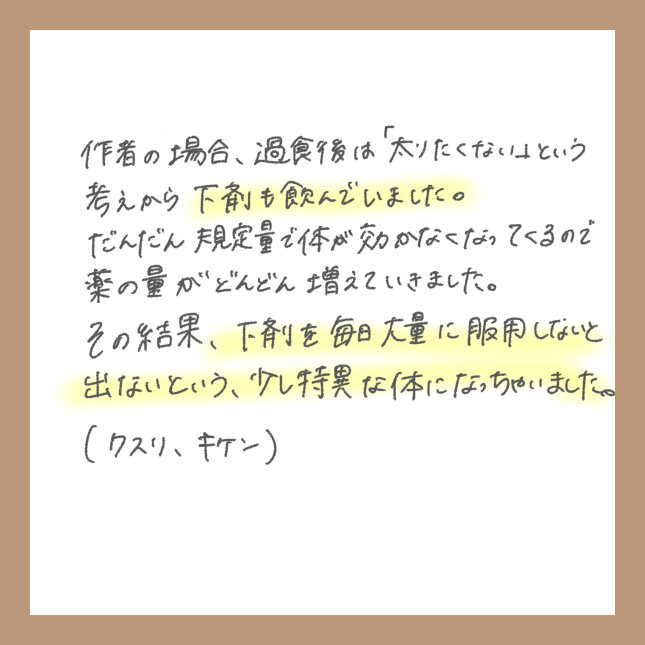 作者の場合、過食後は「太りたくない」という
考えから下剤も飲んでいました。
だんだん規定量で体が効かなくなってくるので
薬の量がどんどん増えていきました。
その結果、下剤を毎日大量に服用しないと
出ないという、少し特異な体になっちゃいました。
(クスリ、キケン)